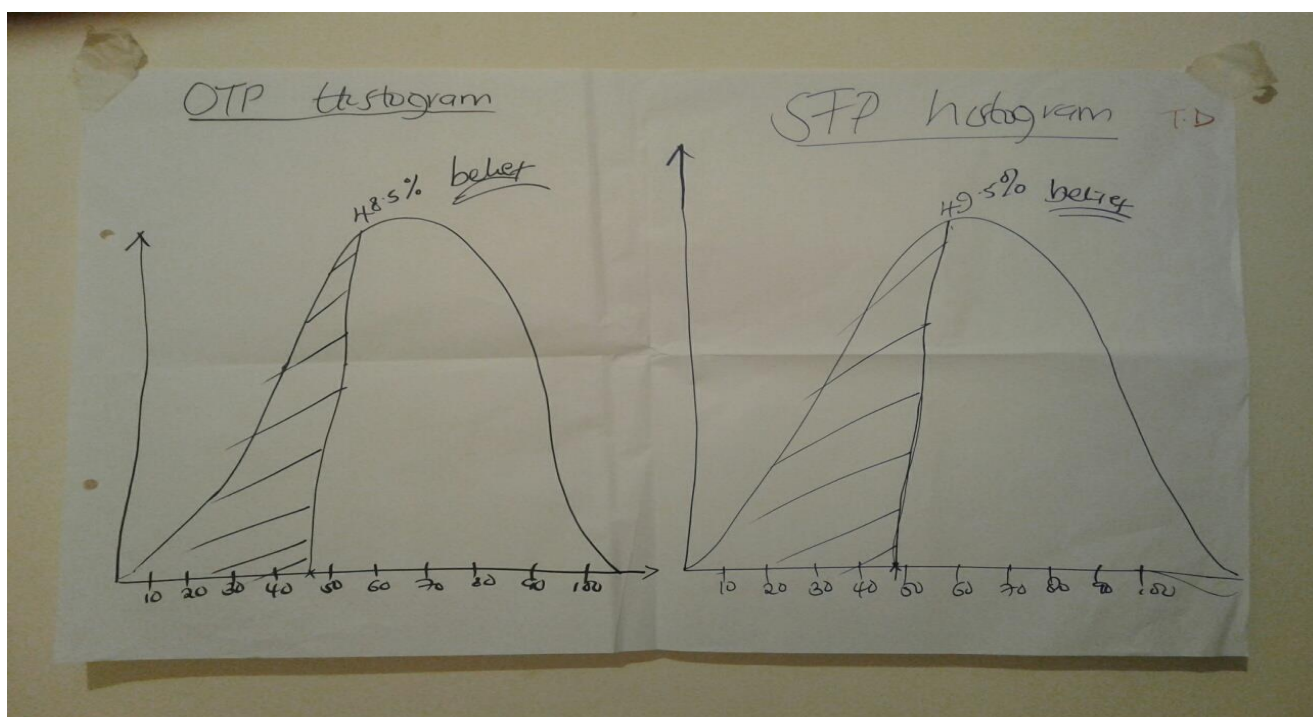 OTP Histogram
48.5% belief
10 20 30 40 50 60 70 80 90 100
STP histogram T.D
49.5% belief
10 20 30 40 50 60 70 80 90 100